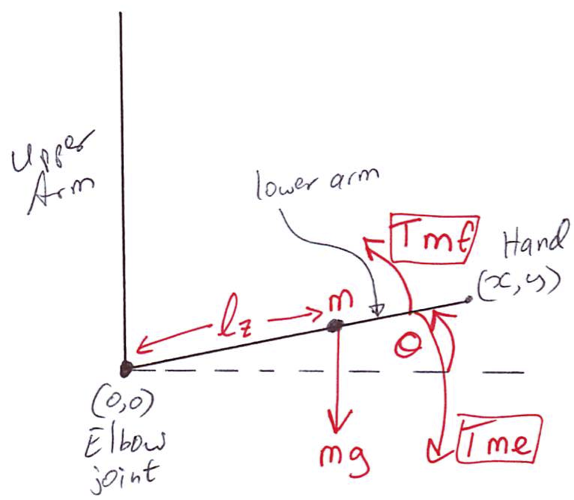 Upper
Arm
lower arm
Tmf
Hand
(x,y)
m
lz
θ
(0,0)
Elbow
joint
mg
Tme